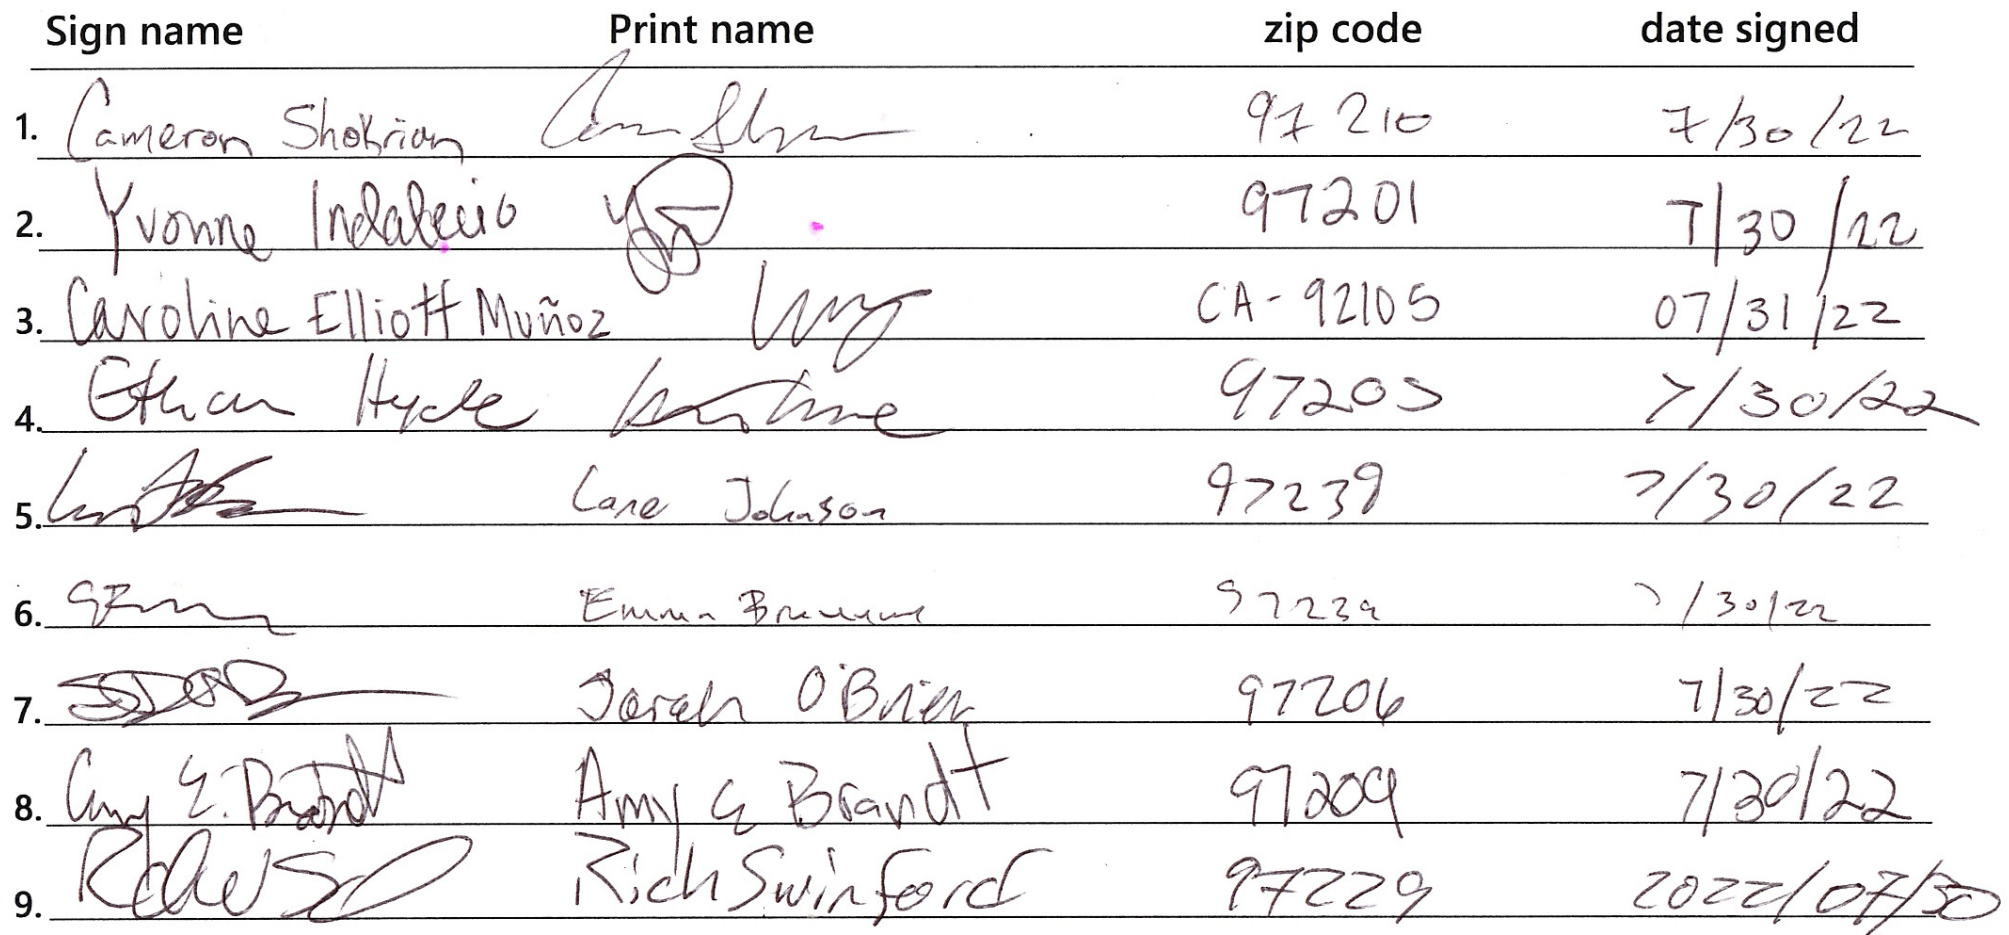 Sign name Print name zip code date signed
1. Cameron Shokrian 97210 7/30/22
2. Yvonne Indalecio 97201 7/30/22
3. Caroline Elliott Muñoz CA-92105 07/31/22
4. Ethan Hyde 97205 7/30/22
5. Lane Johnson 97239 7/30/22
6. Emma 97239 7/30/22
7. Sarah O'Brien 97206 7/30/22
8. Amy E. Brandt Amy E Brandt 97209 7/30/22
9. Rich Swinford 97229 2022/07/30